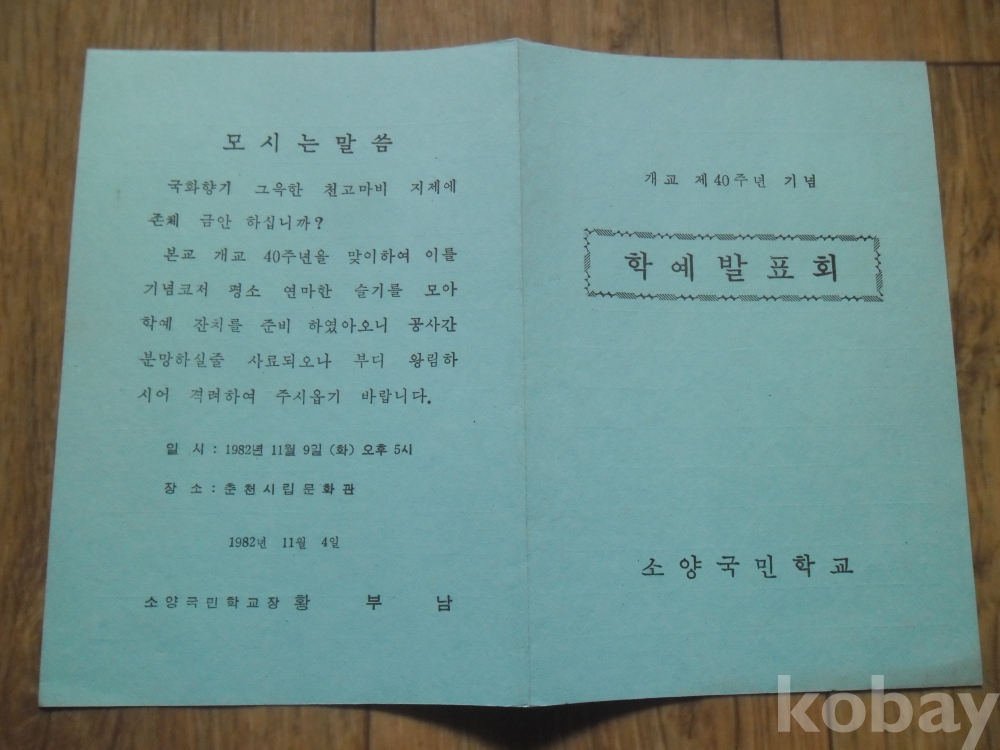 모시는말씀
국화향기 그윽한 천고마비 지제에
존체 금안 하십니까?
본교 개교 40주년을 맞이하여 이를
기념코저 평소 연마한 슬기를 모아
학예 잔치를 준비 하였아오니 공사간
분망하실줄 사료되오나 부디 왕림하
시어 격려하여 주시옵기 바랍니다.
일 시 : 1982년 11월 9일 (화) 오후 5시
장 소 : 춘천시립문화관
1982년 11월 4일
소양국민학교장 황 부 남
개교 제40주년 기념
학예발표회
소양국민학교
kobay